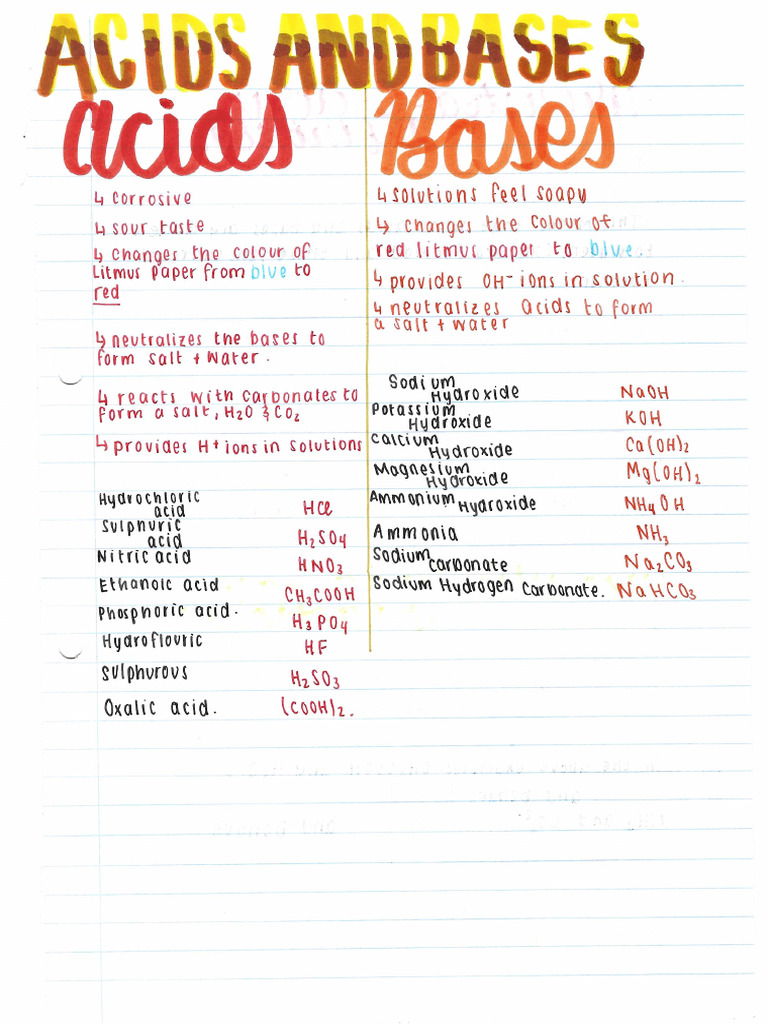 ACIDS AND BASES
acids
↳ corrosive
↳ sour taste
↳ changes the colour of
Litmus paper from blue to
red
↳ neutralizes the bases to
form salt + water.
↳ reacts with carbonates to
form a salt, H₂O & CO₂
↳ provides H⁺ ions in solutions
Hydrochloric
acid HCl
Sulphuric
acid H₂SO₄
Nitric acid HNO₃
Ethanoic acid CH₃COOH
Phosphoric acid. H₃PO₄
Hydroflouric HF
Sulphurous H₂SO₃
Oxalic acid. (COOH)₂.
Bases
↳ solutions feel soapy
↳ changes the colour of
red litmus paper to blue.
↳ provides OH⁻ ions in solution.
↳ neutralizes acids to form
a salt + water
Sodium
Hydroxide NaOH
Potassium
Hydroxide KOH
Calcium
Hydroxide Ca(OH)₂
Magnesium
Hydroxide Mg(OH)₂
Ammonium Hydroxide NH₄OH
Ammonia NH₃
Sodium
carbonate Na₂CO₃
Sodium Hydrogen Carbonate. NaHCO₃